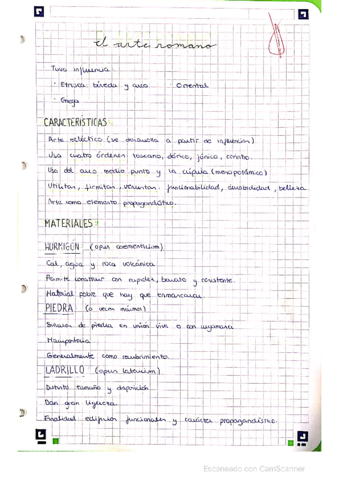 El arte romano
Tuvo influencia
· Etrusca: bóveda y arco Oriental
· Griega
CARACTERÍSTICAS
Arte ecléctico (se desarrolla a partir de influencias)
Usa cuatro órdenes toscano, dórico, jónico, corintio.
Uso del arco medio punto y la cúpula (mesopotámico)
Utilitas, firmitas, venustas. funcionabilidad, durabilidad, belleza
Arte como elemento propagandístico.
MATERIALES
HORMIGÓN (opus caementicium)
Cal, agua y roca volcánica
Permite construir con rapidez, barato y resistente.
Material pobre que hay que enmarcarar
PIEDRA
de piedra en unión viva o con argamasa
Mampostería
Generalmente como recubrimiento.
LADRILLO (opus latericium)
Distinto tamaño y disposición
Dan gran ligereza
Finalidad edificios funcionales y carácter propagandístico.
Escaneado con CamScanner